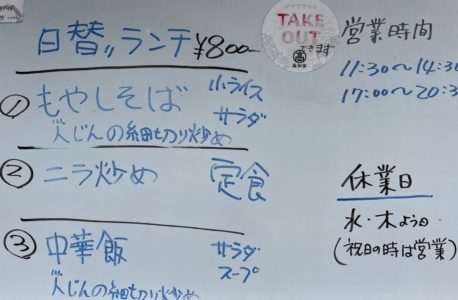 日替〃ランチ ¥800
① もやしそば 小ライス
サラダ
人じんの細切り炒め
② ニラ炒め 定食
③ 中華飯 サラダ
スープ
人じんの細切り炒め
TAKE
OUT
できます
営業時間
11:30〜14:30
17:00〜20:3
休業日
水・木よう日
(祝日の時は営業)